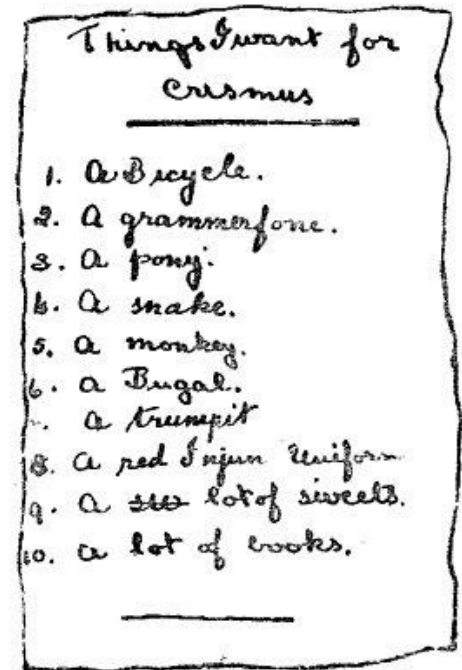 Things I want for
Crismus
1. A Bicycle.
2. A grammerfone.
3. A pony.
4. A snake.
5. A monkey.
6. A Bugal.
. A trumpit
8. A red Injun Uniform
9. A lot of sweets.
10. A lot of books.